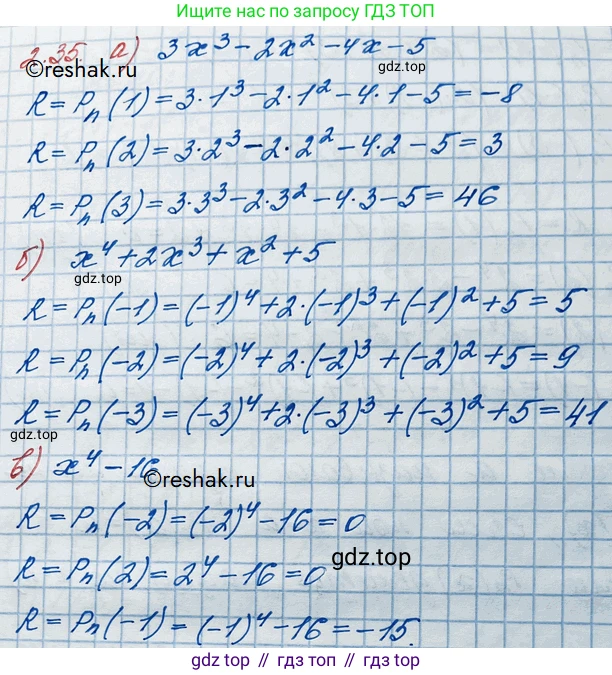 Ищите по запросу ГДЗ ТОП
2.35 а) 3x³ - 2x² - 4x - 5
©reshak.ru
gdz.top
R = Pₙ(1) = 3·1³ - 2·1² - 4·1 - 5 = -8
R = Pₙ(2) = 3·2³ - 2·2² - 4·2 - 5 = 3
R = Pₙ(3) = 3·3³ - 2·3² - 4·3 - 5 = 46
б) x⁴ + 2x³ + x² + 5
gdz.top
R = Pₙ(-1) = (-1)⁴ + 2·(-1)³ + (-1)² + 5 = 5
gdz.top
R = Pₙ(-2) = (-2)⁴ + 2·(-2)³ + (-2)² + 5 = 9
R = Pₙ(-3) = (-3)⁴ + 2·(-3)³ + (-3)² + 5 = 41
gdz.top
в) x⁴ - 16
©reshak.ru
R = Pₙ(-2) = (-2)⁴ - 16 = 0
gdz.top
R = Pₙ(2) = 2⁴ - 16 = 0
R = Pₙ(-1) = (-1)⁴ - 16 = -15.
gdz.top // гдз.top // гдз.топ